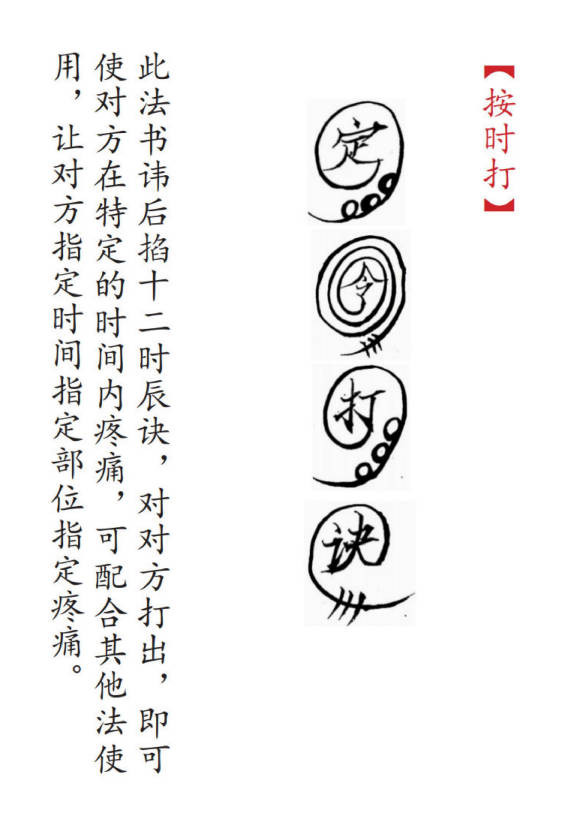 【按时打】
定
令
打
诀
此法书讳后掐十二时辰诀，对对方打出，即可
使对方在特定的时间内疼痛，可配合其他法使
用，让对方指定时间指定部位指定疼痛。